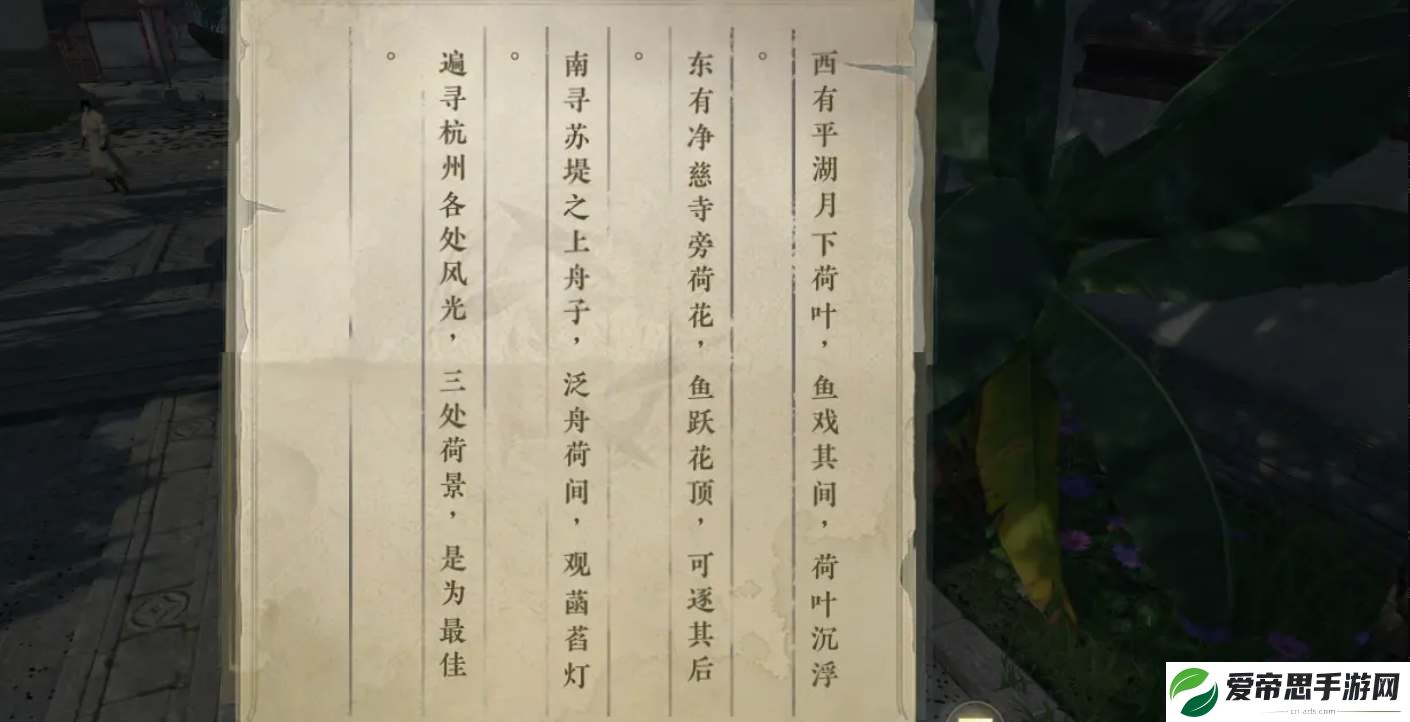 西有平湖月下荷叶，鱼戏其间，荷叶沉浮
。
东有净慈寺旁荷花，鱼跃花顶，可逐其后
。
南寻苏堤之上舟子，泛舟荷间，观菡萏灯
。
遍寻杭州各处风光，三处荷景，是为最佳
。
爱帝思手游网
cn-ads.com